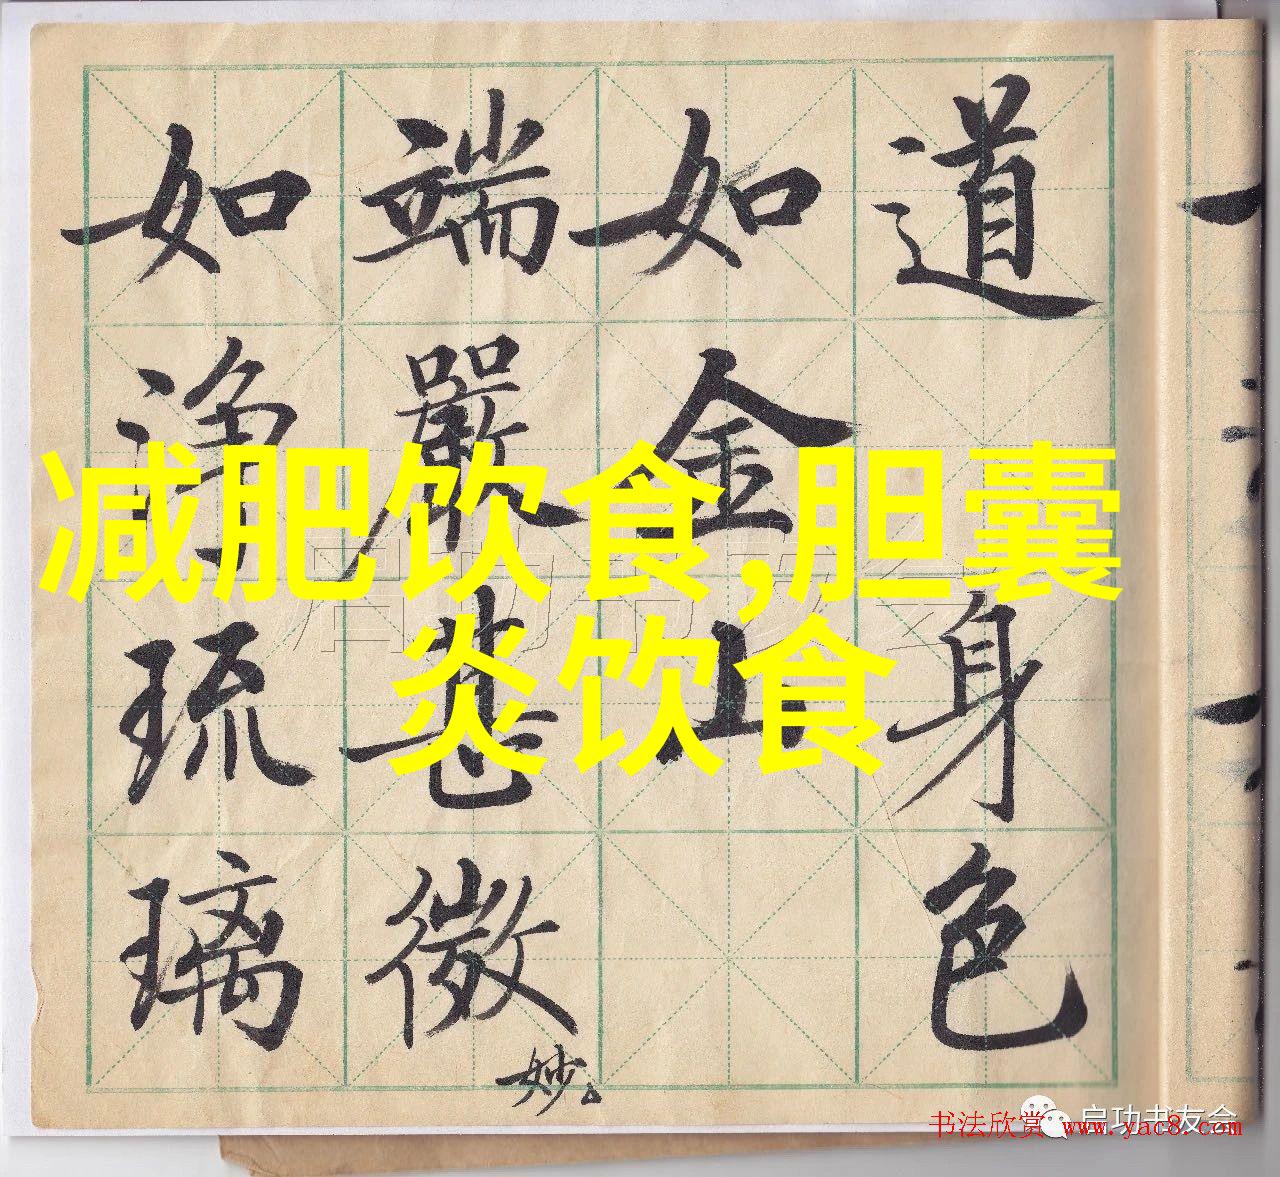 道身色
如金山
端嚴甚微妙
如淨琉璃
减肥饮食,胆囊
炎饮食
启功书友会
书法欣赏 www.yac8.com
启功书友会